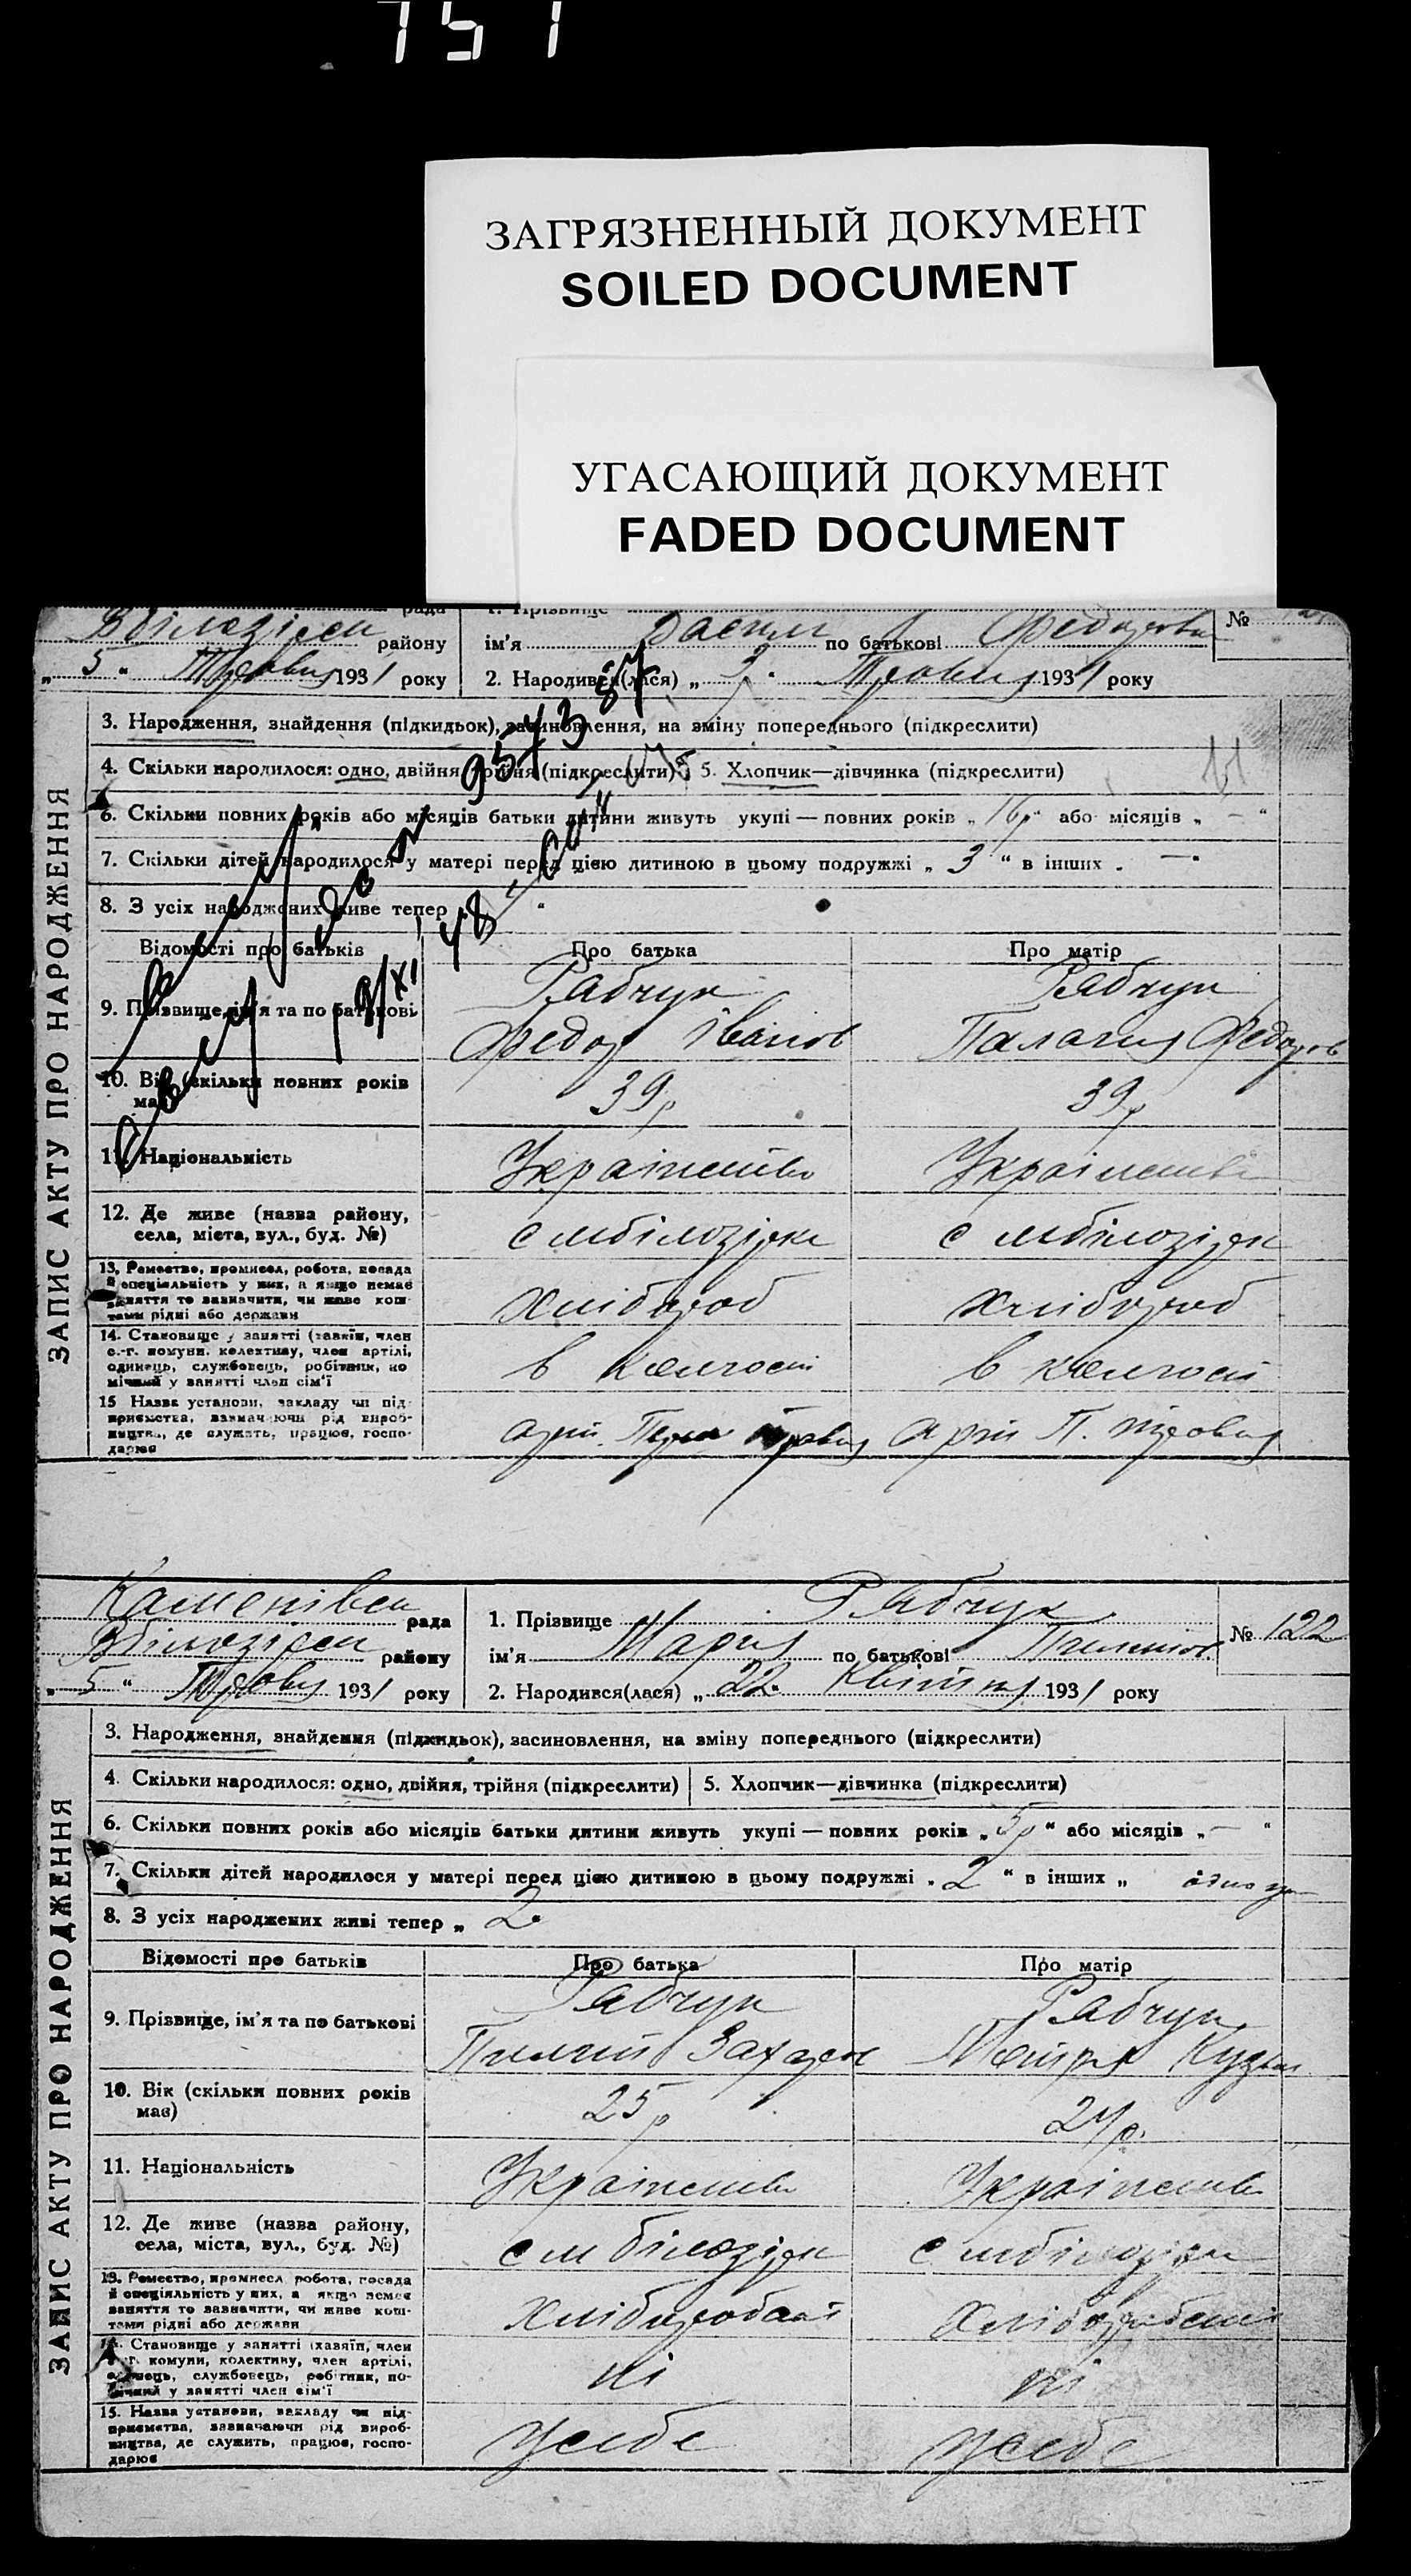 751
ЗАГРЯЗНЕННЫЙ ДОКУМЕНТ
SOILED DOCUMENT
УГАСАЮЩИЙ ДОКУМЕНТ
FADED DOCUMENT
рада 1. Прізвище №
району ім'я Васил по батькові Федорович
„ 5 “ Травня 1931 року 2. Народився(лася) „ 3 “ Травня 1931 року
ЗАПИС АКТУ ПРО НАРОДЖЕННЯ
3. Народження, знайдення (підкидьок), засиновлення, на зміну попереднього (підкреслити)
4. Скільки народилося: одно, двійня, трійня (підкреслити) 5. Хлопчик—дівчинка (підкреслити) 11
6. Скільки повних років або місяців батьки дитини живуть укупі — повних років „ 16р “ або місяців „ - “
7. Скільки дітей народилося у матері перед цією дитиною в цьому подружжі „ 3 “ в інших „ — “
8. З усіх народжених живе тепер
Відомості про батьків Про батька Про матір
9. Прізвище, ім'я та по батькові Рабчук Рабчук
Федор Іванов Палагия Федоров
10. Вік (скільки повних років має) 39р 39р
11. Національність Українсть Українсть
12. Де живе (назва району, села, міста, вул., буд. №) с мбілозірки с мбілозірки
13. Ремество, промисел, робота, посада й спеціяльність у них, а якщо немає заняття то зазначити, чи живе коштами рідні або держави Хлібороб хлібороб
14. Становище у занятті (хазяїн, член с.-г. комуни, колективу, член артілі, одинець, службовець, робітник, помічний у занятті член сім'ї в колгосп в колгосп
15. Назва установи, закладу чи підприємства, зазначаючи рід виробництва, де служить, працює, господарює арт. Перш травня арт П. травня
рада 1. Прізвище Рабчук
району ім'я Мария по батькові № 122
„ 5 “ Травня 1931 року 2. Народився(лася) „ 22 “ Квітня 1931 року
ЗАПИС АКТУ ПРО НАРОДЖЕННЯ
3. Народження, знайдення (підкидьок), засиновлення, на зміну попереднього (підкреслити)
4. Скільки народилося: одно, двійня, трійня (підкреслити) 5. Хлопчик—дівчинка (підкреслити)
6. Скільки повних років або місяців батьки дитини живуть укупі — повних років „ 5р “ або місяців „ — “
7. Скільки дітей народилося у матері перед цією дитиною в цьому подружжі „ 2 “ в інших „
8. З усіх народжених живі тепер „ 2 “
Відомості про батьків Про батька Про матір
9. Прізвище, ім'я та по батькові Рабчук Рабчук
Захаров
10. Вік (скільки повних років має) 25р 24р.
11. Національність Українсть Українсть
12. Де живе (назва району, села, міста, вул., буд. №) с м білозірк с мбілозірк
13. Ремество, промисел, робота, посада й спеціяльність у них, а якщо немає заняття то зазначити, чи живе коштами рідні або держави
14. Становище у занятті (хазяїн, член с.-г. комуни, колективу, член артілі, одинець, службовець, робітник, помічний у занятті член сім'ї ні ні
15. Назва установи, закладу чи підприємства, зазначаючи рід виробництва, де служить, працює, господарює усебе усебе